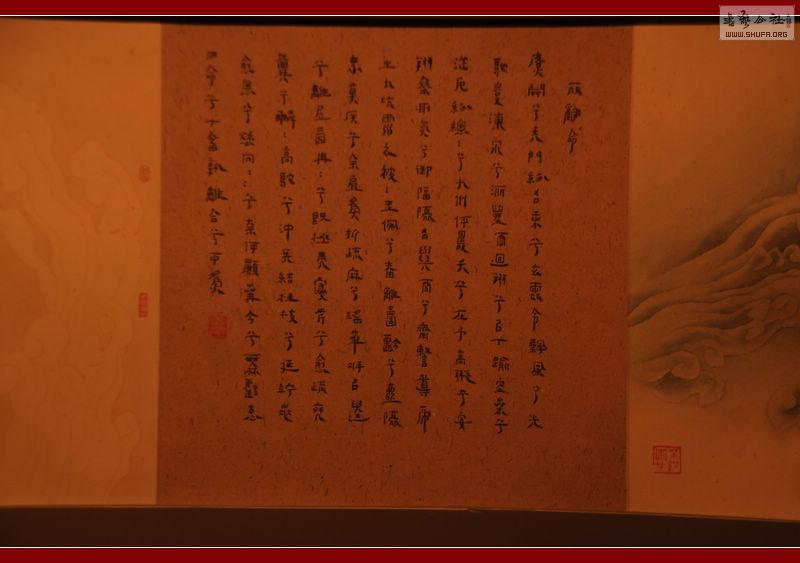 書藝公社
WWW.SHUFA.ORG
大司命
廣開兮天門紛吾乘兮玄雲令飄風兮先
驅使涷雨兮灑塵君迴翔兮以下踰空桑兮
從女紛總〻兮九州何壽夭兮在予高飛兮安
翔乘清氣兮御陰陽吾與君兮齋速導帝
之九坑靈衣被〻玉佩兮陸離壹陰兮壹陽
眾莫知兮余所為折疏麻兮瑤華將以遺
兮離居老冉〻兮既極不寖近兮愈疏乘
龍兮轔〻高駝兮沖天結桂枝兮延竚羌
愈思兮愁人〻兮奈何願若今兮無虧固
人命兮有當孰離合兮可為